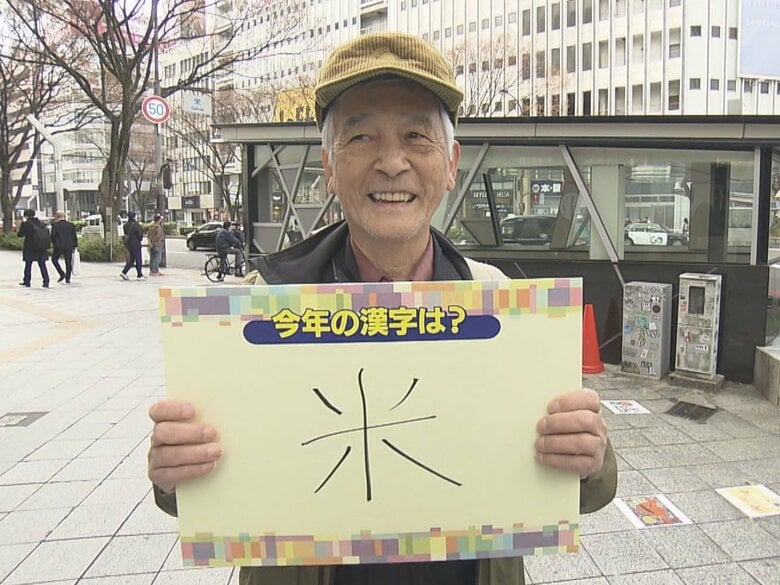 50
今年の漢字は?
米